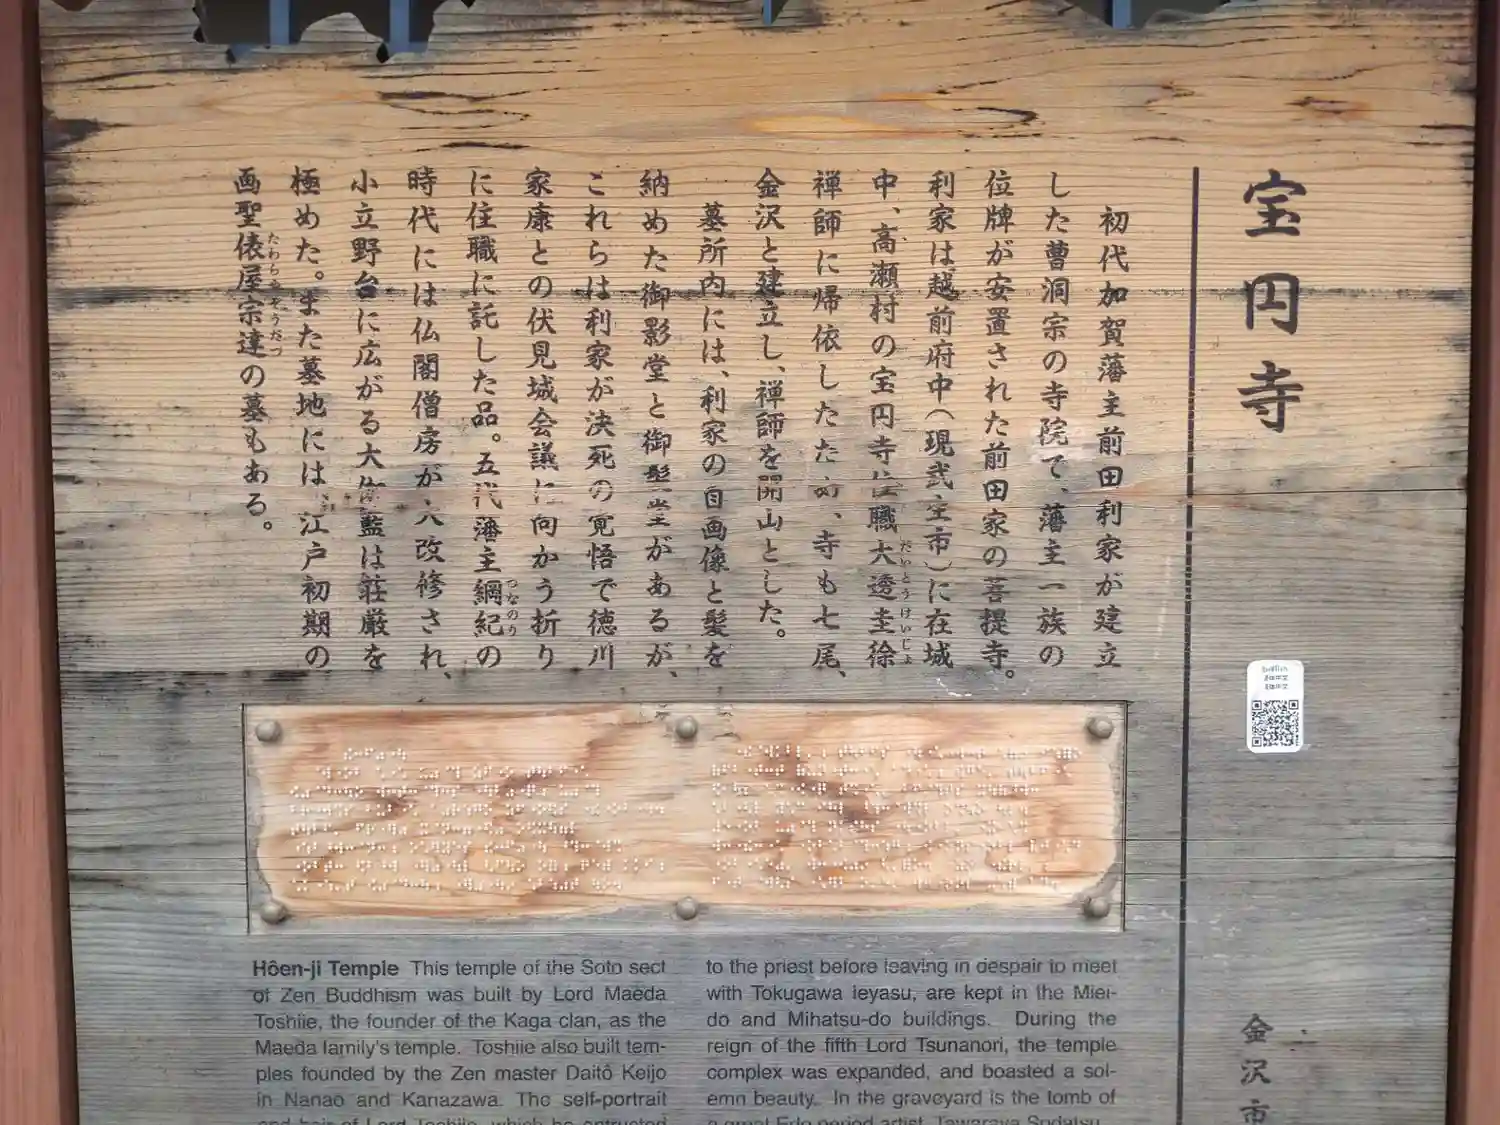 宝円寺
初代加賀藩主前田利家が建立
した曹洞宗の寺院で、藩主一族の
位牌が安置された前田家の菩提寺。
利家は越前府中(現武生市)に在城
中、高瀬村の宝円寺住職大透圭徐
だいとうけいじょ
禅師に帰依したため、寺も七尾、
金沢と建立し、禅師を開山とした。
墓所内には、利家の自画像と髪を
納めた御影堂と御髪堂があるが、
これらは利家が決死の覚悟で徳川
家康との伏見城会議に向かう折り
に住職に託した品。五代藩主綱紀の
つなのり
時代には仏閣僧房が大改修され、
小立野台に広がる大伽藍は荘厳を
極めた。また墓地には、江戸初期の
画聖俵屋宗達の墓もある。
たわらやそうだつ
金沢市
Hôen-ji Temple This temple of the Soto sect
of Zen Buddhism was built by Lord Maeda
Toshiie, the founder of the Kaga clan, as the
Maeda family's temple. Toshiie also built tem-
ples founded by the Zen master Daitô Keijo
in Nanao and Kanazawa. The self-portrait
and hair of Lord Toshiie, which he entrusted
to the priest before leaving in despair to meet
with Tokugawa Ieyasu, are kept in the Miei-
do and Mihatsu-do buildings. During the
reign of the fifth Lord Tsunanori, the temple
complex was expanded, and boasted a sol-
emn beauty. In the graveyard is the tomb of
a great Edo period artist, Tawaraya Sodatsu.